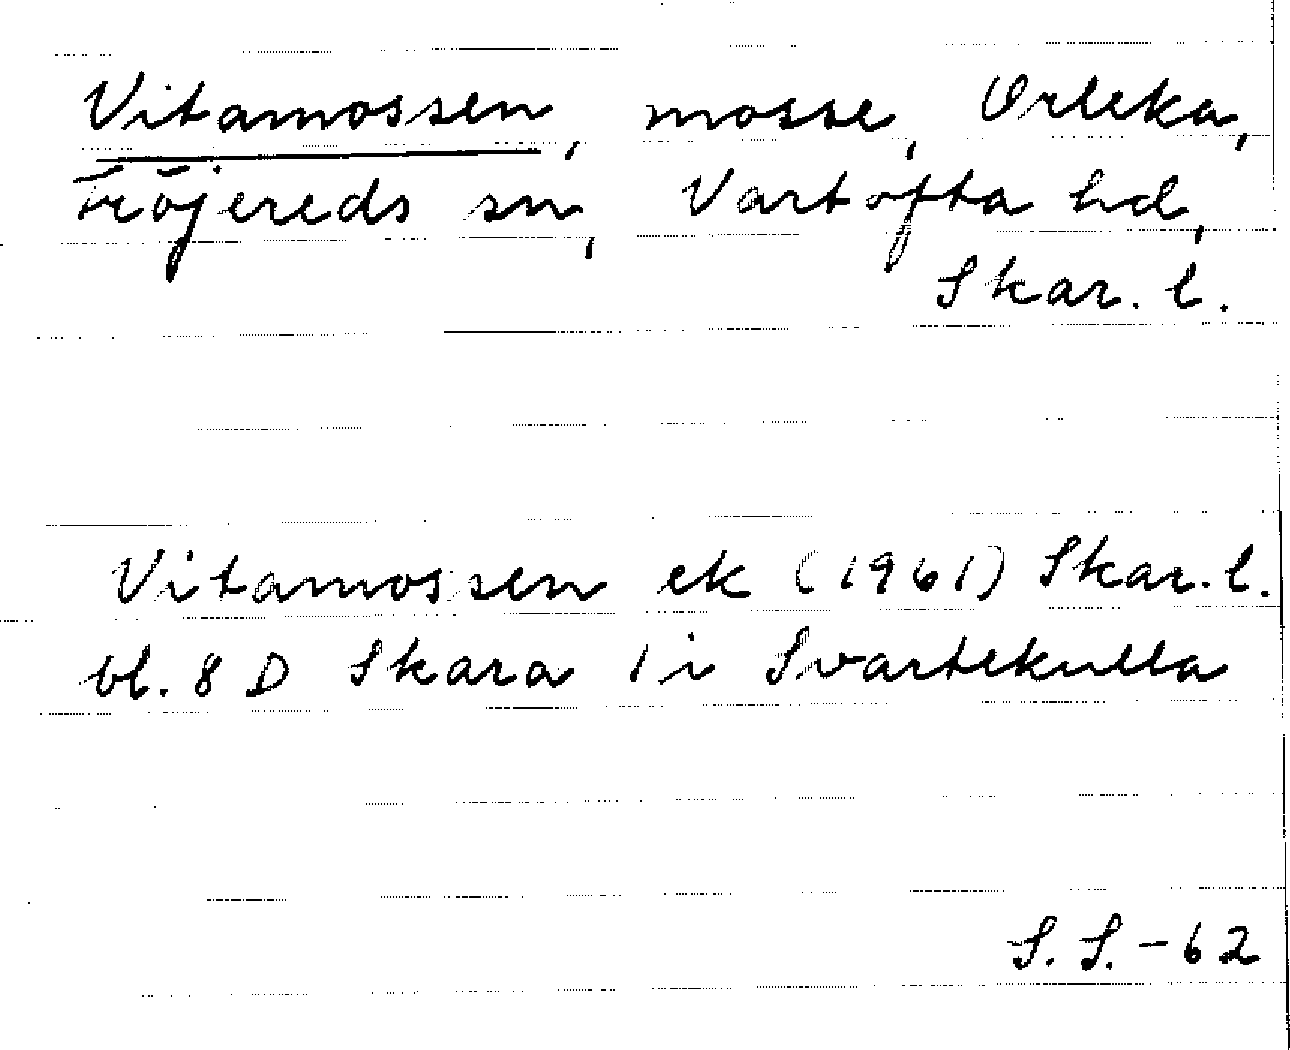 Vitamossen, mosse, Orleka,
Fröjereds sn, Vartofta hd,
Skar. l.
Vitamossen ek (1961) Skar. l.
bl. 8 D Skara 1 i Svartekulla
S. S. - 62